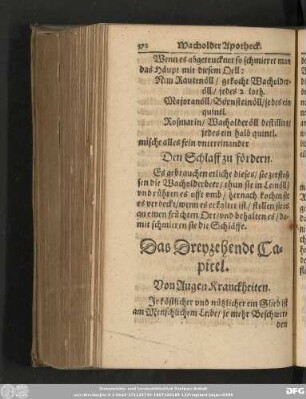 372 Wacholder Apotheck.
Wenn es abgetrucknet so schmieret man
das Häupt mit diesem Oell:
Nim Rautenöll / gekocht Wacholder-
öll / jedes 2 loth.
Majoranöll / Börnsteinöll / jedes ein
quintl.
Rosmarin / Wacholderöll destillirt /
jedes ein halb quintl.
mische alles fein untereinander
Den Schlaff zu fördern.
Es gebrauchen etliche dieses / sie zerstos-
sen die Wacholderbeer / thun sie in Leinöll /
vnd rühren es offt vmb / hernach kochen sie
es verdeckt / wenn es erkaltet ist / stellen sie es
an einen feuchten Ort / vnd behalten es / da-
mit schmieren sie die Schläffe.
Das Dreyzehende Ca-
pitel.
Von Augen Kranckheiten.
Je köstlicher vnd nützlicher ein Glied ist
am Menschlichem Leibe / je mehr Beschwer-
den